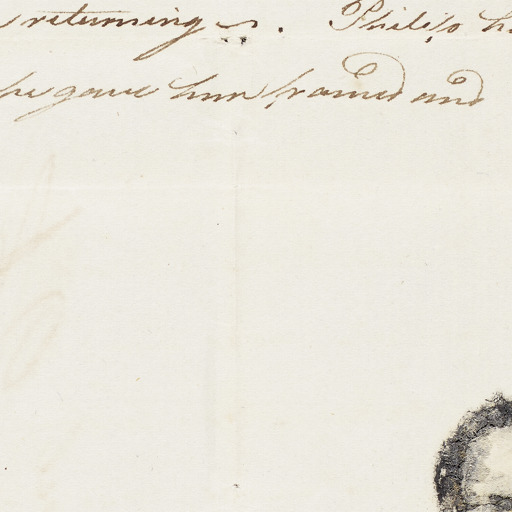 returning . Philip h
he gave him framed and